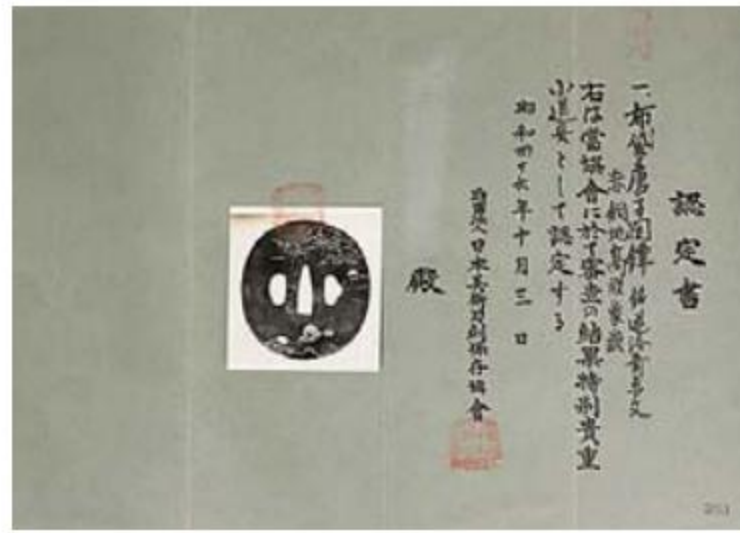 認定書
一、布袋唐子図鐔
赤銅地高彫象嵌
右は當協會に於て審査の結果特別貴重
小道具として認定する
昭和四十六年十月三日
財団法人日本美術刀剣保存協會
殿